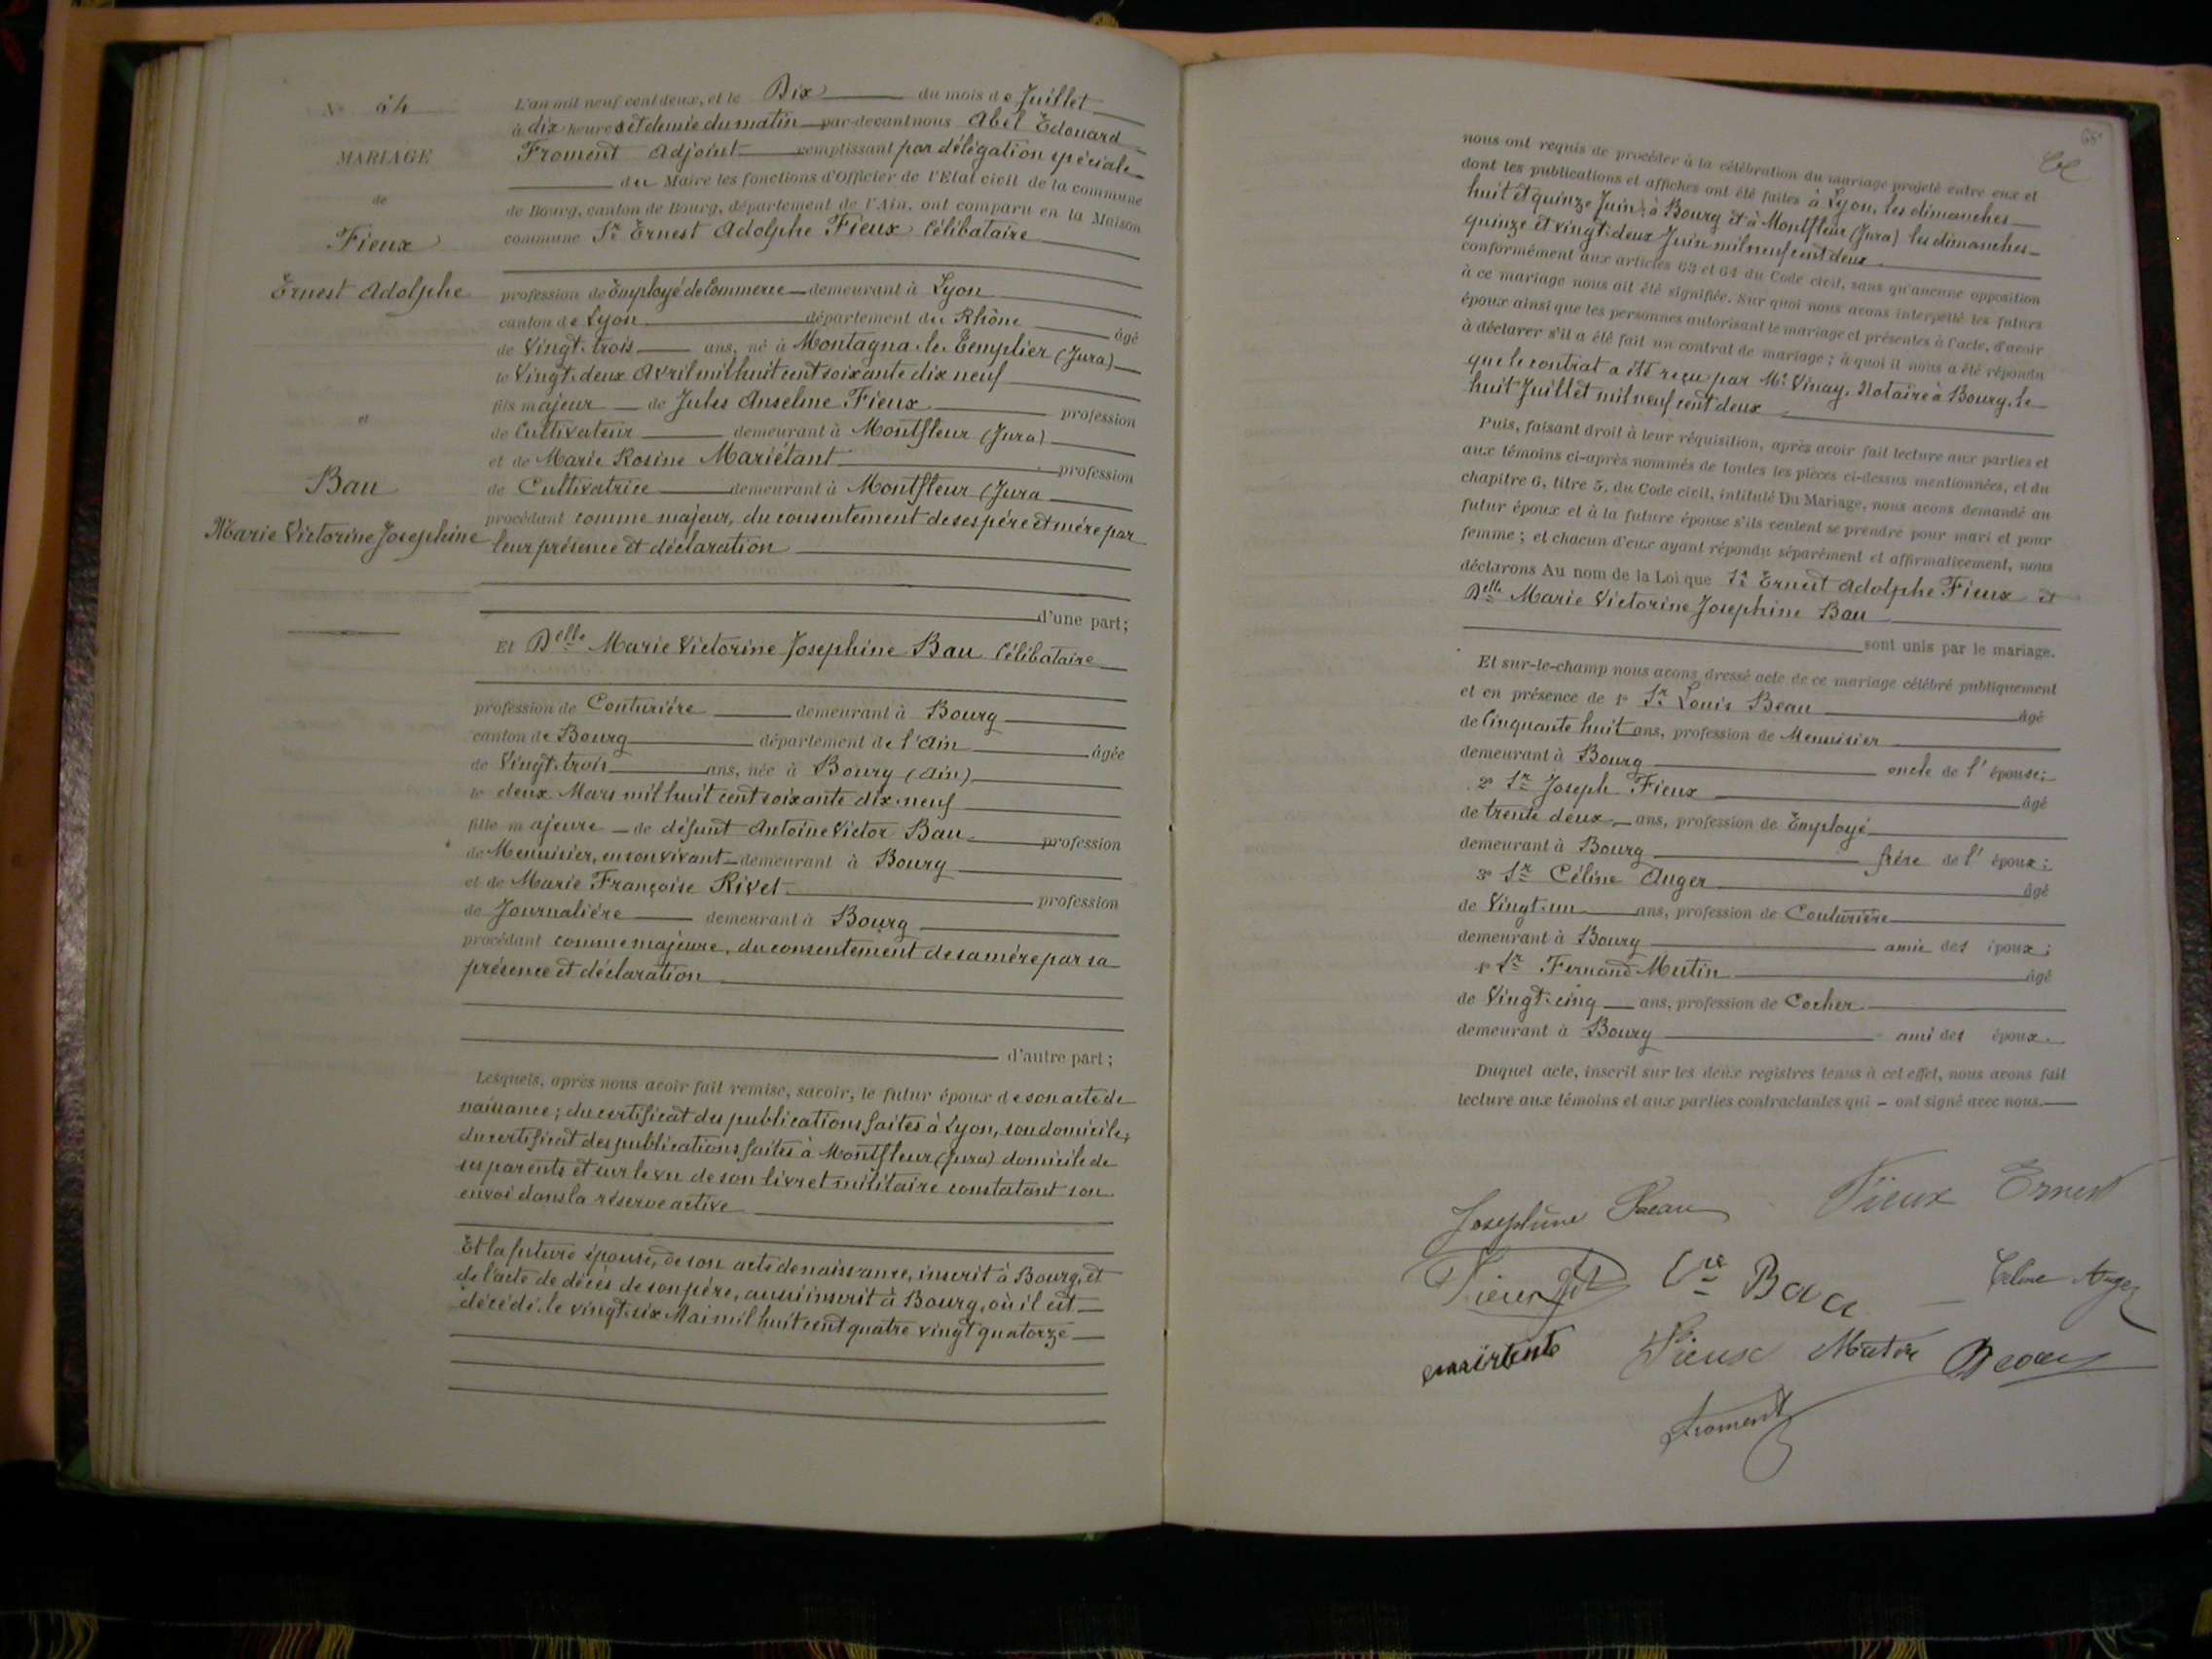 N° 64
MARIAGE
de
Fieux
Ernest Adolphe
et
Bau
Marie Victorine Josephine
L'an mil neuf cent deux, et le Dix du mois de Juillet
à dix heures et demie du matin par-devant nous Abel Edouard
Froment Adjoint remplissant par délégation spéciale
du Maire les fonctions d'Officier de l'Etat civil de la commune
de Bourg, canton de Bourg, département de l'Ain, ont comparu en la Maison
commune Sr Ernest Adolphe Fieux Célibataire
profession de Employé de Commerce demeurant à Lyon
canton de Lyon département du Rhône âgé
de Vingt-trois ans, né à Montagna-le-Templier (Jura)
le Vingt-deux Avril mil huit cent soixante dix neuf
fils majeur de Jules Anselme Fieux profession
de Cultivateur demeurant à Montfleur (Jura)
et de Marie Rosine Mariétant profession
de Cultivatrice demeurant à Montfleur (Jura
procédant comme majeur, du consentement de ses père et mère par
leur présence et déclaration
d'une part;
Et Delle Marie Victorine Josephine Bau Célibataire
profession de Couturière demeurant à Bourg
canton de Bourg département de l'Ain âgée
de Vingt-trois ans, née à Bourg (Ain)
le deux Mars mil huit cent soixante dix-neuf
fille majeure de défunt Antoine Victor Bau profession
de Menuisier, en son vivant demeurant à Bourg
et de Marie Françoise Rivet profession
de Journalière demeurant à Bourg
procédant comme majeure, du consentement de sa mère par sa
présence et déclaration
d'autre part;
Lesquels, après nous avoir fait remise, savoir, le futur époux de son acte de
naissance; du certificat des publications faites à Lyon, son domicile;
du certificat des publications faites à Montfleur (Jura) domicile de
ses parents et sur le vu de son livret militaire constatant son
envoi dans la réserve active
Et la future épouse, de son acte de naissance, inscrit à Bourg, et
de l'acte de décès de son père, aussi inscrit à Bourg, où il est
décédé le vingt-six Mai mil huit cent quatre vingt quatorze
68
nous ont requis de procéder à la célébration du mariage projeté entre eux et
dont les publications et affiches ont été faites à Lyon, les dimanches
huit et quinze Juin; à Bourg et à Montfleur (Jura) les dimanches
quinze et vingt-deux Juin mil neuf cent deux
conformément aux articles 63 et 64 du Code civil, sans qu'aucune opposition
à ce mariage nous ait été signifiée. Sur quoi nous avons interpellé les futurs
époux ainsi que les personnes autorisant le mariage et présentes à l'acte, d'avoir
à déclarer s'il a été fait un contrat de mariage; à quoi il nous a été répondu
que le contrat a été reçu par Me Vinay, Notaire à Bourg, le
huit Juillet mil neuf cent deux
Puis, faisant droit à leur réquisition, après avoir fait lecture aux parties et
aux témoins ci-après nommés de toutes les pièces ci-dessus mentionnées, et du
chapitre 6, titre 5, du Code civil, intitulé Du Mariage, nous avons demandé au
futur époux et à la future épouse s'ils veulent se prendre pour mari et pour
femme; et chacun d'eux ayant répondu séparément et affirmativement, nous
déclarons Au nom de la Loi que Sr Ernest Adolphe Fieux et
Delle Marie Victorine Josephine Bau
sont unis par le mariage.
Et sur-le-champ nous avons dressé acte de ce mariage célébré publiquement
et en présence de 1° Sr Louis Beau âgé
de Cinquante huit ans, profession de Menuisier
demeurant à Bourg oncle de l'épouse;
2° Sr Joseph Fieux âgé
de trente deux ans, profession de Employé
demeurant à Bourg frère de l'époux;
3° Sr Céline Auger âgé
de Vingt-un ans, profession de Couturière
demeurant à Bourg amie des époux;
4° Sr Fernand Mutin âgé
de Vingt-cinq ans, profession de Cocher
demeurant à Bourg ami des époux.
Duquel acte, inscrit sur les deux registres tenus à cet effet, nous avons fait
lecture aux témoins et aux parties contractantes qui - ont signé avec nous.
Josephine Beau Fieux Ernest
Fieux Vve Bau Céline Auger
Fieux Mutin Beau
Froment